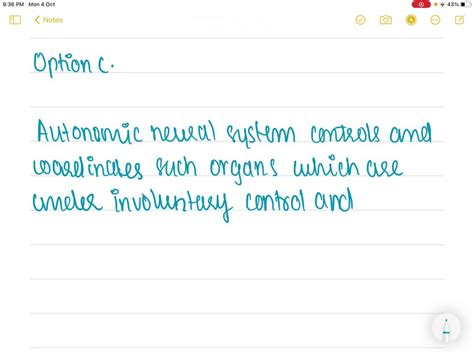 9:36 PM Mon 4 Oct
43%
Notes
Option C.
Autonomic neural system controls and
coordinates such organs which are
under involuntary control and